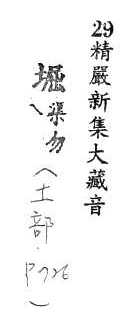 29精嚴新集大藏音
堀渠勿(土部.
P726)